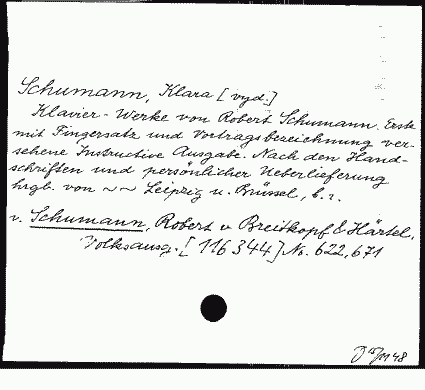 Schumann, Klara [vyd.]
Klavier-Werke von Robert Schumann. Erste
mit Fingersatz und Vortragsbezeichnung ver-
sehene Instructive Ausgabe. Nach den Hand-
schriften und persönlicher Ueberlieferung
hrgb. von ~~ Leipzig u. Brüssel, b. r.
v. Schumann, Robert v Breitkopf & Härtel,
Volksausg. [116344] No. 622, 671
48